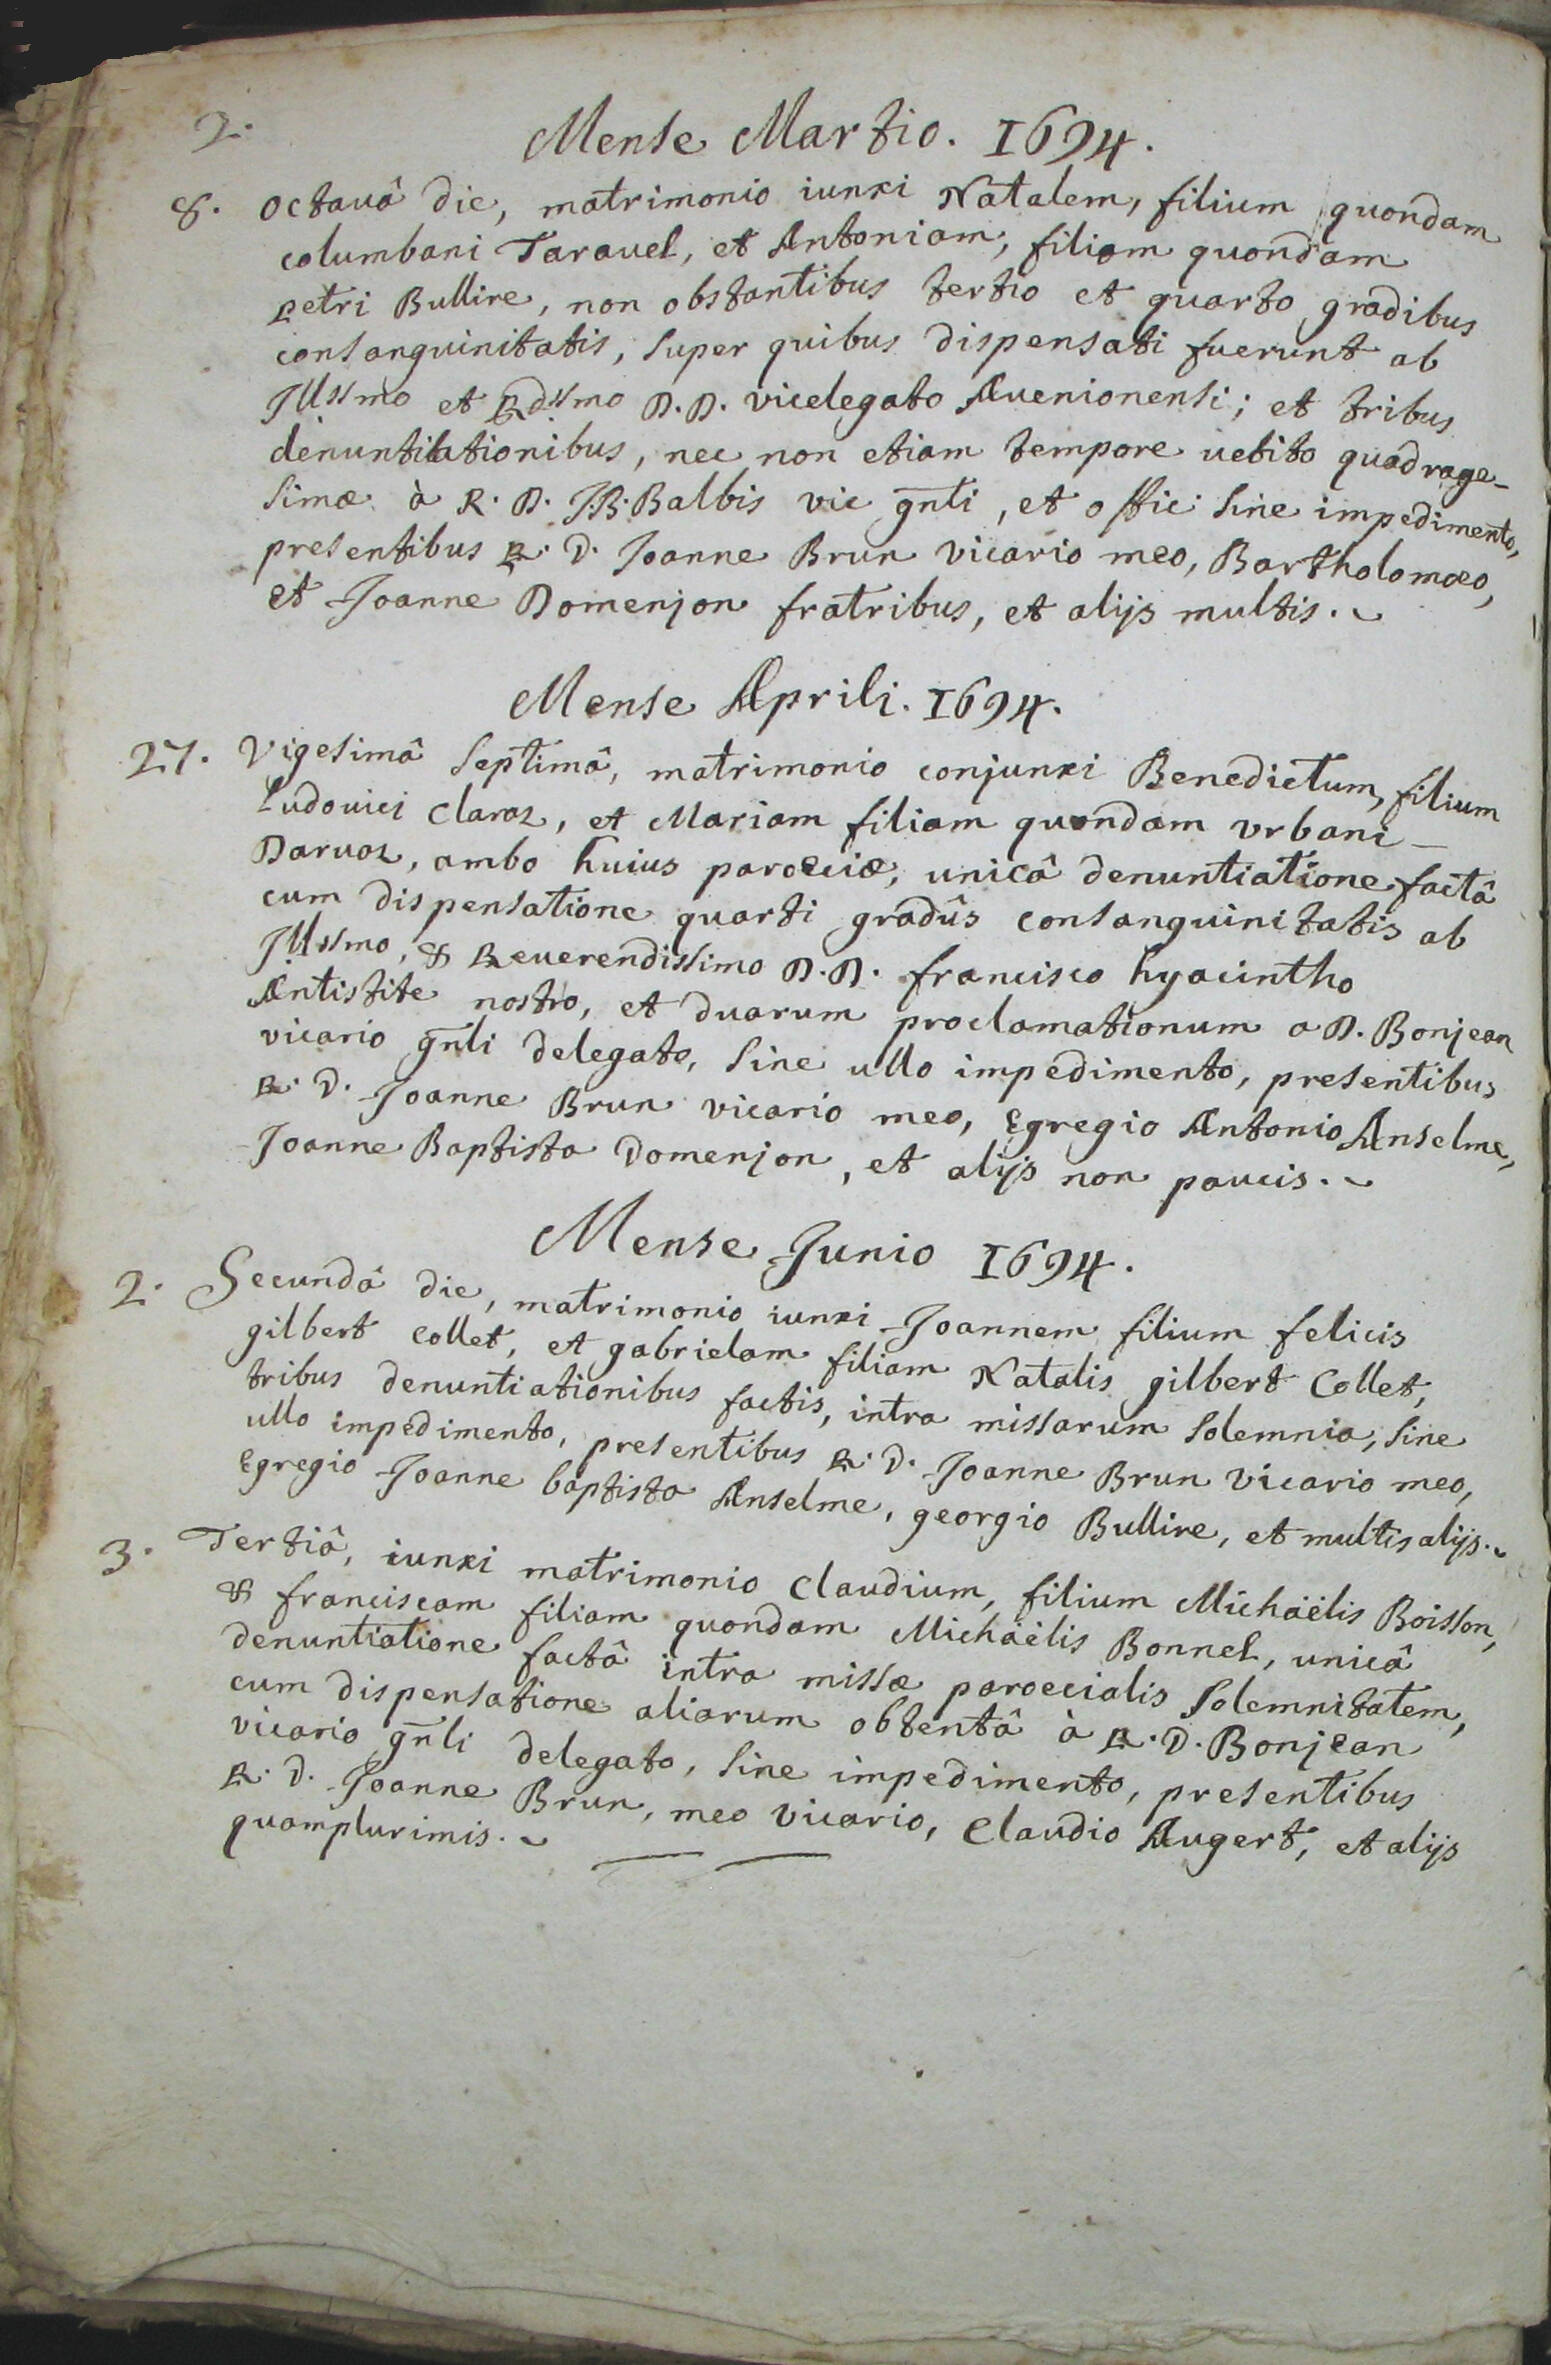 2.
Mense Martio. 1694.
8. Octauâ die, matrimonio iunxi Natalem, filium quondam
columbani Tarauel, et Antoniam, filiam quondam
petri Bullire, non obstantibus tertio et quarto gradibus
consanguinitatis, super quibus dispensati fuerunt ab
Jllssmo et Rdssmo D.D. vicelegato Auenionensi; et tribus
denuntiationibus, nec non etiam tempore uetito quadrage-
simæ à R. D. J.B. Balbis vic gn̄li, et offic sine impedimento,
presentibus R. D. Joanne Brun vicario meo, Bartholomæo,
et Joanne Domenjon fratribus, et alijs multis.
Mense Aprili. 1694.
27. Vigesimâ septimâ, matrimonio conjunxi Benedictum, filium
Ludouici Claraz, et Mariam filiam quondam vrbani
Daruaz, ambo huius parœciæ, unicâ denuntiatione factâ
cum dispensatione quarti gradûs consanguinitatis ab
Jllssmo, & Reuerendissimo D.D. francisco hyacintho
Antistite nostro, et duarum proclamationum a D. Bonjean
vicario gn̄li delegato, sine ullo impedimento, presentibus
R. D. Joanne Brun vicario meo, Egregio Antonio Anselme,
Joanne Baptista Domenjon, et alijs non paucis.
Mense Junio 1694.
2. Secundâ die, matrimonio iunxi Joannem filium felicis
gilbert Collet, et gabrielam filiam Natalis gilbert Collet,
tribus denuntiationibus factis, intra missarum solemnia, sine
ullo impedimento, presentibus R. D. Joanne Brun vicario meo,
Egregio Joanne baptista Anselme, georgio Bullire, et multis alijs.
3. Tertiâ, iunxi matrimonio Claudium, filium Michaëlis Boisson,
& franciscam filiam quondam Michaëlis Bonnel, unicâ
denuntiatione factâ intra missæ paroecialis solemnitatem,
cum dispensatione aliarum obtentâ à R. D. Bonjean
vicario gn̄li delegato, sine impedimento, presentibus
R. D. Joanne Brun, meo vicario, Claudio Augert, et alijs
quamplurimis.